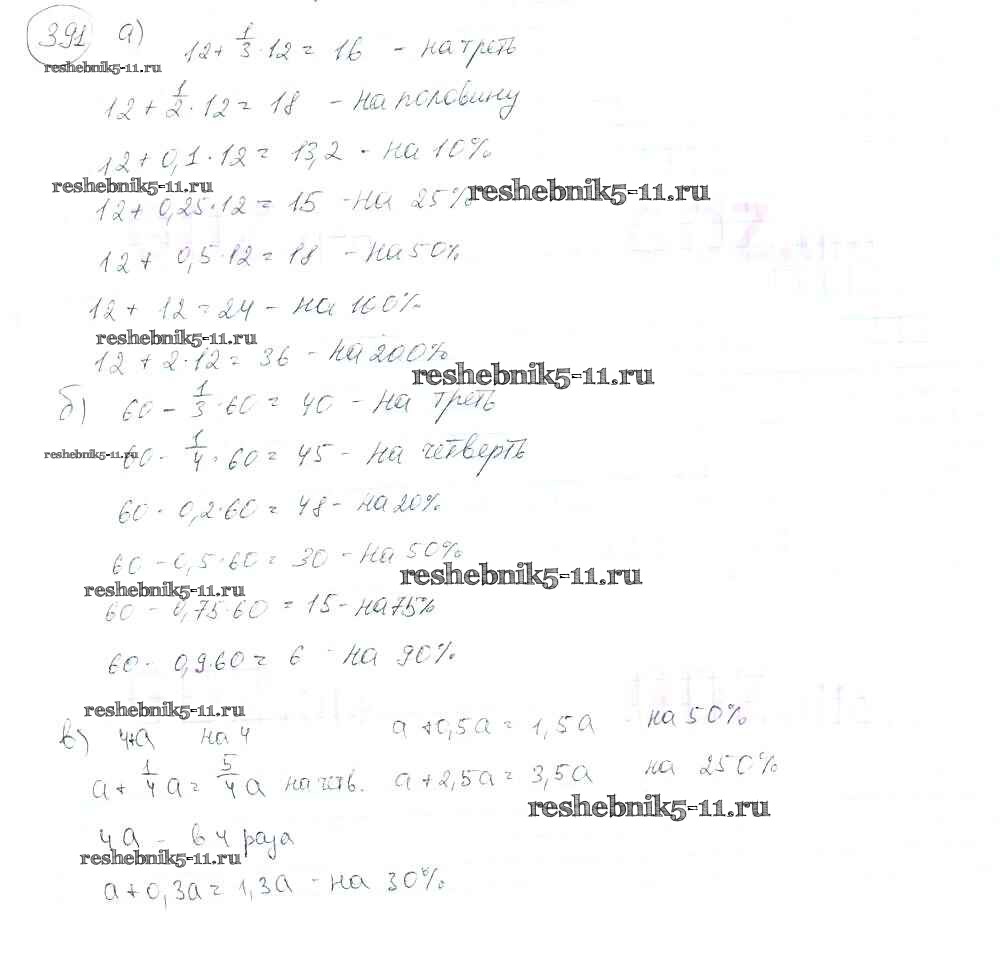 391 а) 12 + 1/3 · 12 = 16 - на треть
reshebnik5-11.ru
12 + 1/2 · 12 = 18 - на половину
12 + 0,1 · 12 = 13,2 - на 10%
reshebnik5-11.ru reshebnik5-11.ru
12 + 0,25 · 12 = 15 - на 25%
12 + 0,5 · 12 = 18 - на 50%
12 + 12 = 24 - на 100%
reshebnik5-11.ru
12 + 2 · 12 = 36 - на 200%
reshebnik5-11.ru
б) 60 - 1/3 · 60 = 40 - на треть
reshebnik5-11.ru
60 - 1/4 · 60 = 45 - на четверть
60 - 0,2 · 60 = 48 - на 20%
60 - 0,5 · 60 = 30 - на 50%
reshebnik5-11.ru reshebnik5-11.ru
60 - 0,75 · 60 = 15 - на 75%
60 - 0,9 · 60 = 6 - на 90%
reshebnik5-11.ru
в) 4+a на 4 a + 0,5a = 1,5a на 50%
a + 1/4 a = 5/4 a на четв. a + 2,5a = 3,5a на 250%
reshebnik5-11.ru
4a - в 4 раза
reshebnik5-11.ru
a + 0,3a = 1,3a - на 30%